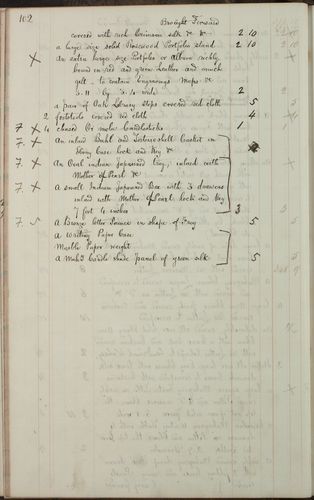 102
Brought Forward
covered with rich Crimson silk &c &c 2 10
a large size solid Rosewood Portfolio stand 2 10
X An extra large size Portfolio or Album richly
bound in red and green Leather and much
gilt - to contain Engravings Maps &c
by wide 2
a pair of Oak Library steps covered red cloth 5
2 footstools covered red cloth 4
7 X 4 chased Or molu Candlesticks 1
7. X An inlaid Buhl and Tortoiseshell Casket in
lock and Key &c
7. X An Oval Indian Japanned Tray, inlaid with
Mother of Pearl &c
7. X A small Indian Japanned Box with 3 drawers
inlaid with Mother of Pearl lock and Key
7 feet 4 inches 3
7. 5 A Bronze letter in shape of Frog 5
a Writing Paper Case
Marble Paper weight 5
a Mahy Candle shade pannel of green silk 5